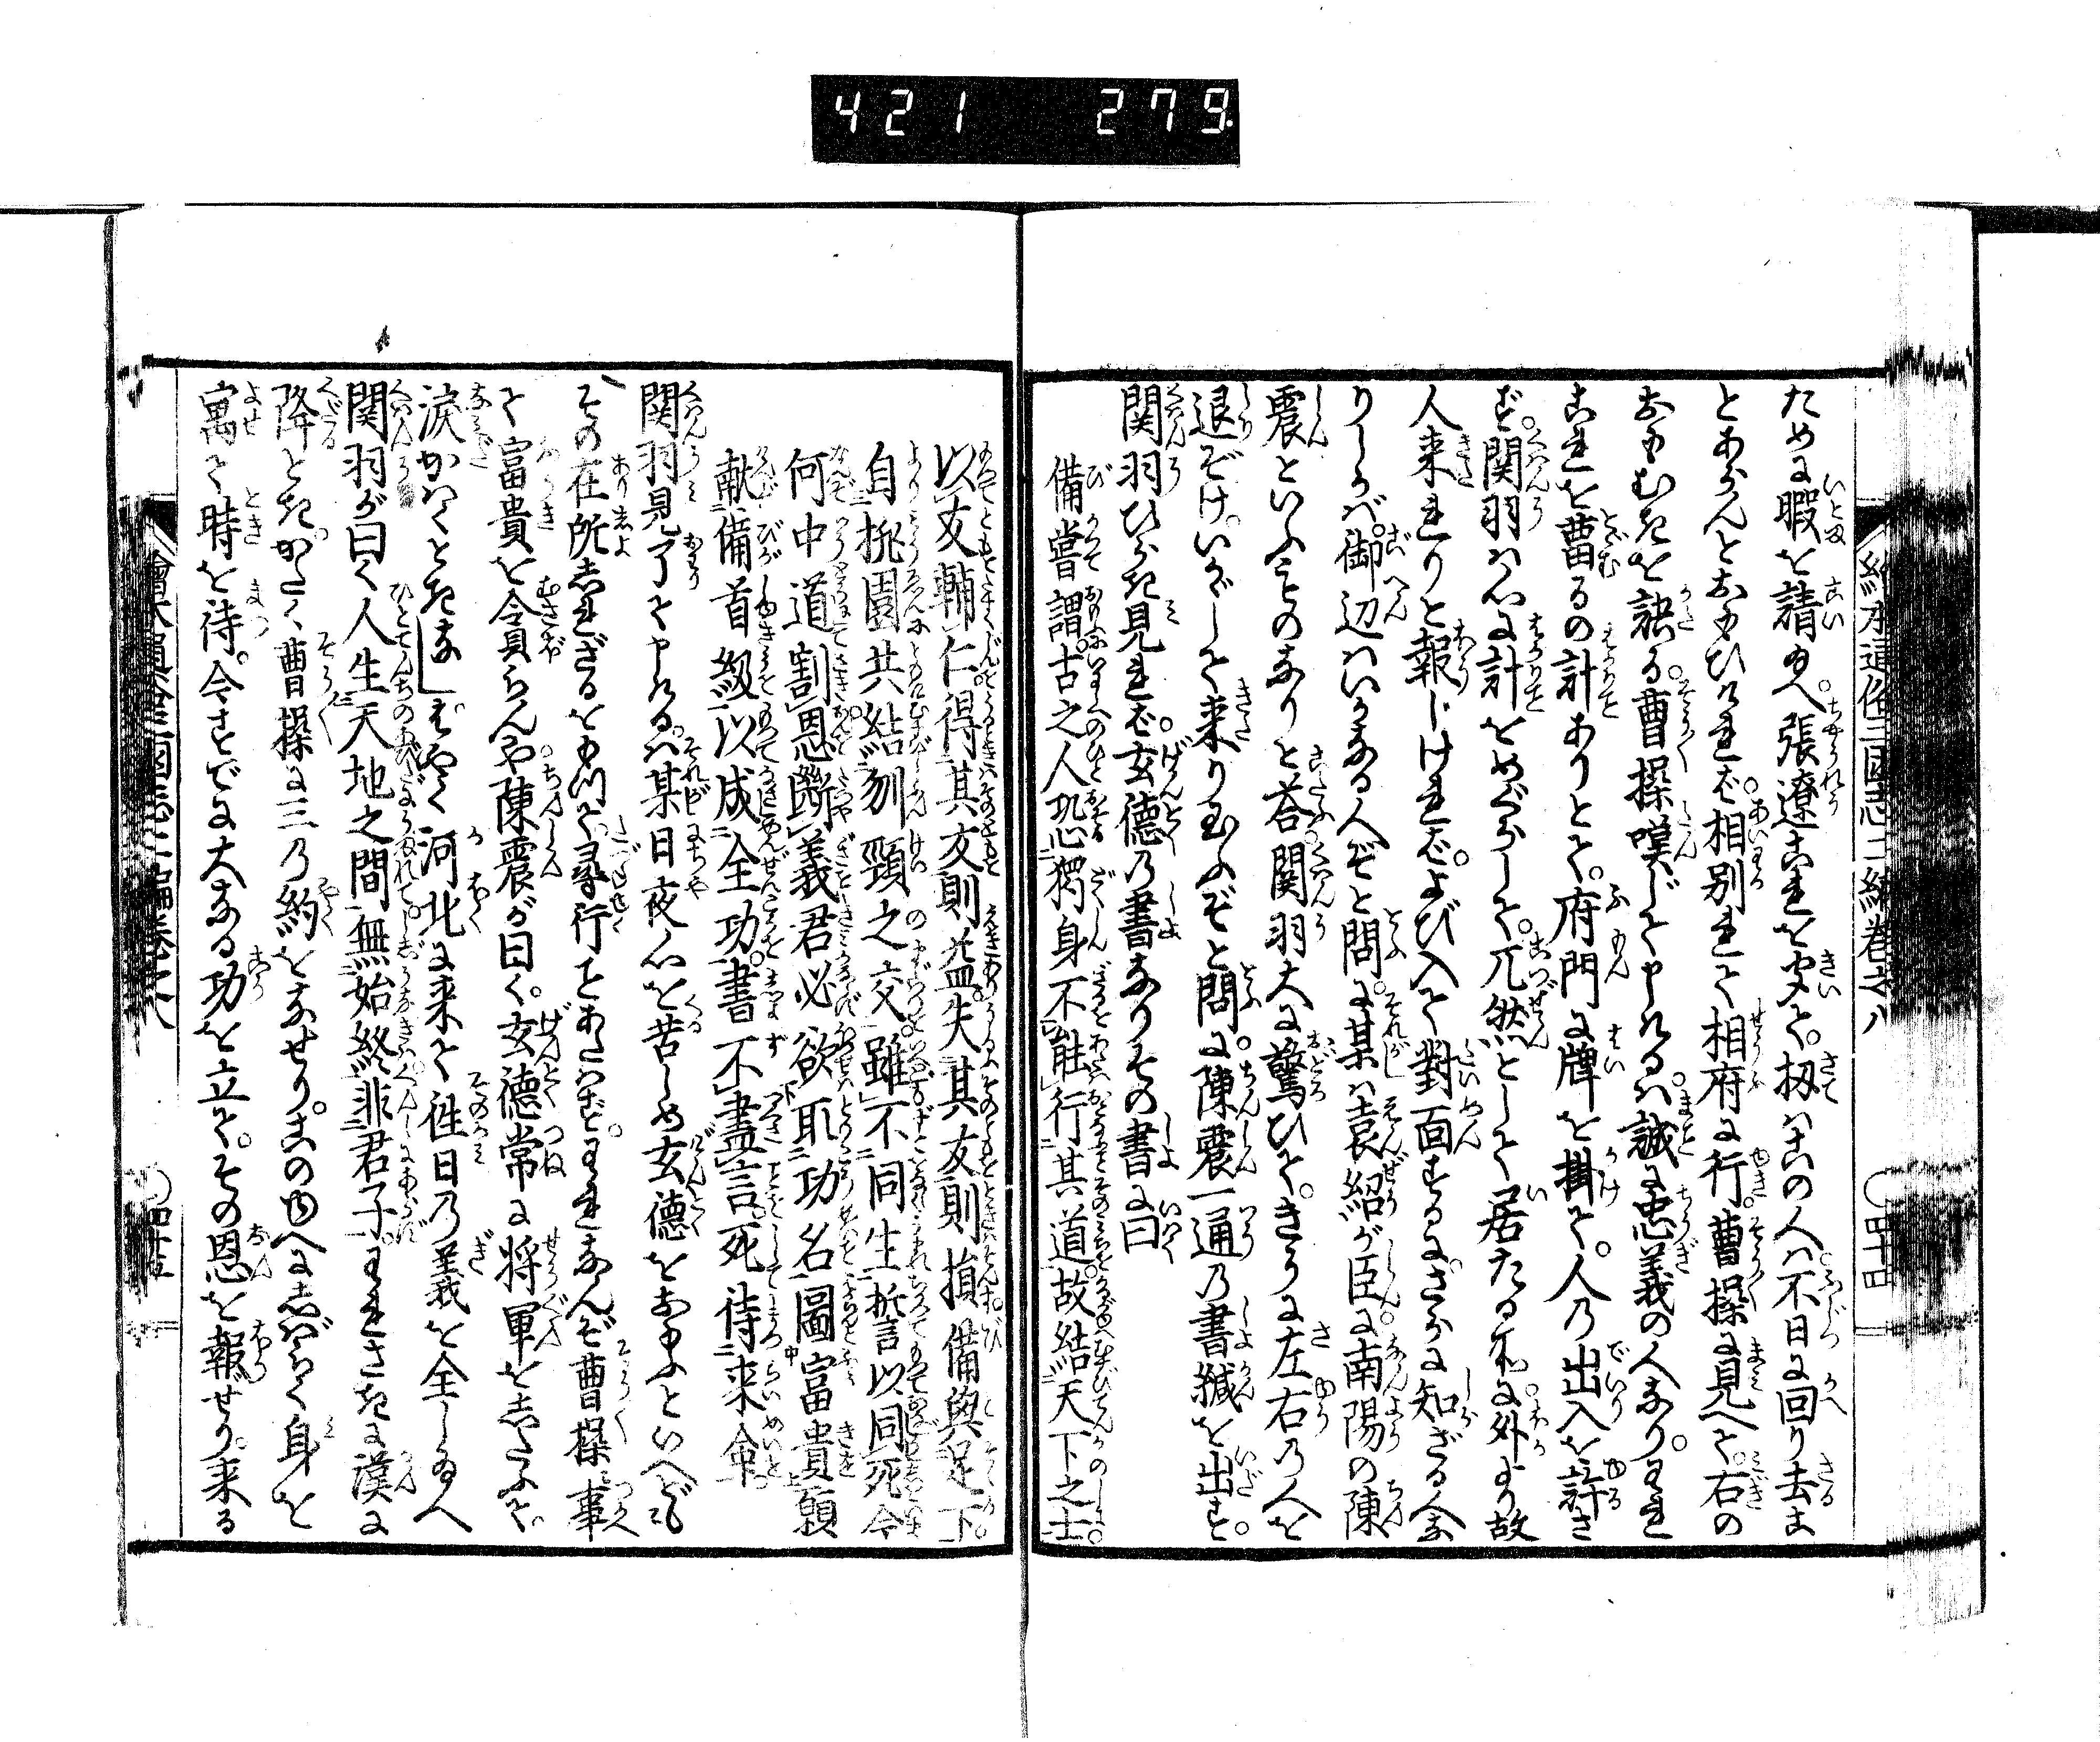 421 279
繪本通俗三國志二編巻之八 〇四十四
ため𛂋暇を請ゆへ張遼これを聞て扨はこの人は不日𛂋回り去ま
とあらんとおもひければ相別れて相府𛂋行曹操𛂋見へて右の
おもむきを語る曹操嘆じて申けるは誠𛂋忠義の人なりわれ
これを留るの計ありとて府門𛂋牌を掛て人の出入を許さ
ず関羽は心𛂋計をめぐらして兀然として居たる所𛂋外より故
人来れりと報じければよび入て對面するにさらに知ざる人な
りしかば御辺はいかなる人ぞと問𛂋某は袁紹が臣𛂋南陽の陳
震といふものなりと荅関羽大𛂋驚ひてきうに左右の人を
退ぞけいかゞして来り玉ふぞと問𛂋陳震一通の書緘を出す
関羽ひらき見れば玄徳の書なりその書𛂋曰
備嘗謂古之人恐獨身不能行其道故結天下之士
以友輔仁得其友則益失其友則損備與足下
自桃園共結刎頸之交雖不同生誓以同死今
何中道割恩斷義君必欲取功名圖富貴願
献備首級以成全功書不盡言死待来命
関羽見了て申けるは某日夜心を苦しめ玄徳をおもふといへども
その在所しれざるを以て尋行ことあたはずわれなんぞ曹操に事
て富貴を貪らんや陳震が曰く玄徳常𛂋将軍をしたふて
涙かはくときなしはやく河北𛂋来て徃日の義を全し玉へ
関羽が曰く人生天地之間無始終非君子われさき𛂋漢𛂋
降ときかたく曹操𛂋三の約をなせりこのゆへ𛂋しばらく身を
寓て時を待今すで𛂋大なる功を立てその恩を報ぜり来る
繪本通俗三國志二編巻之八 〇四十五